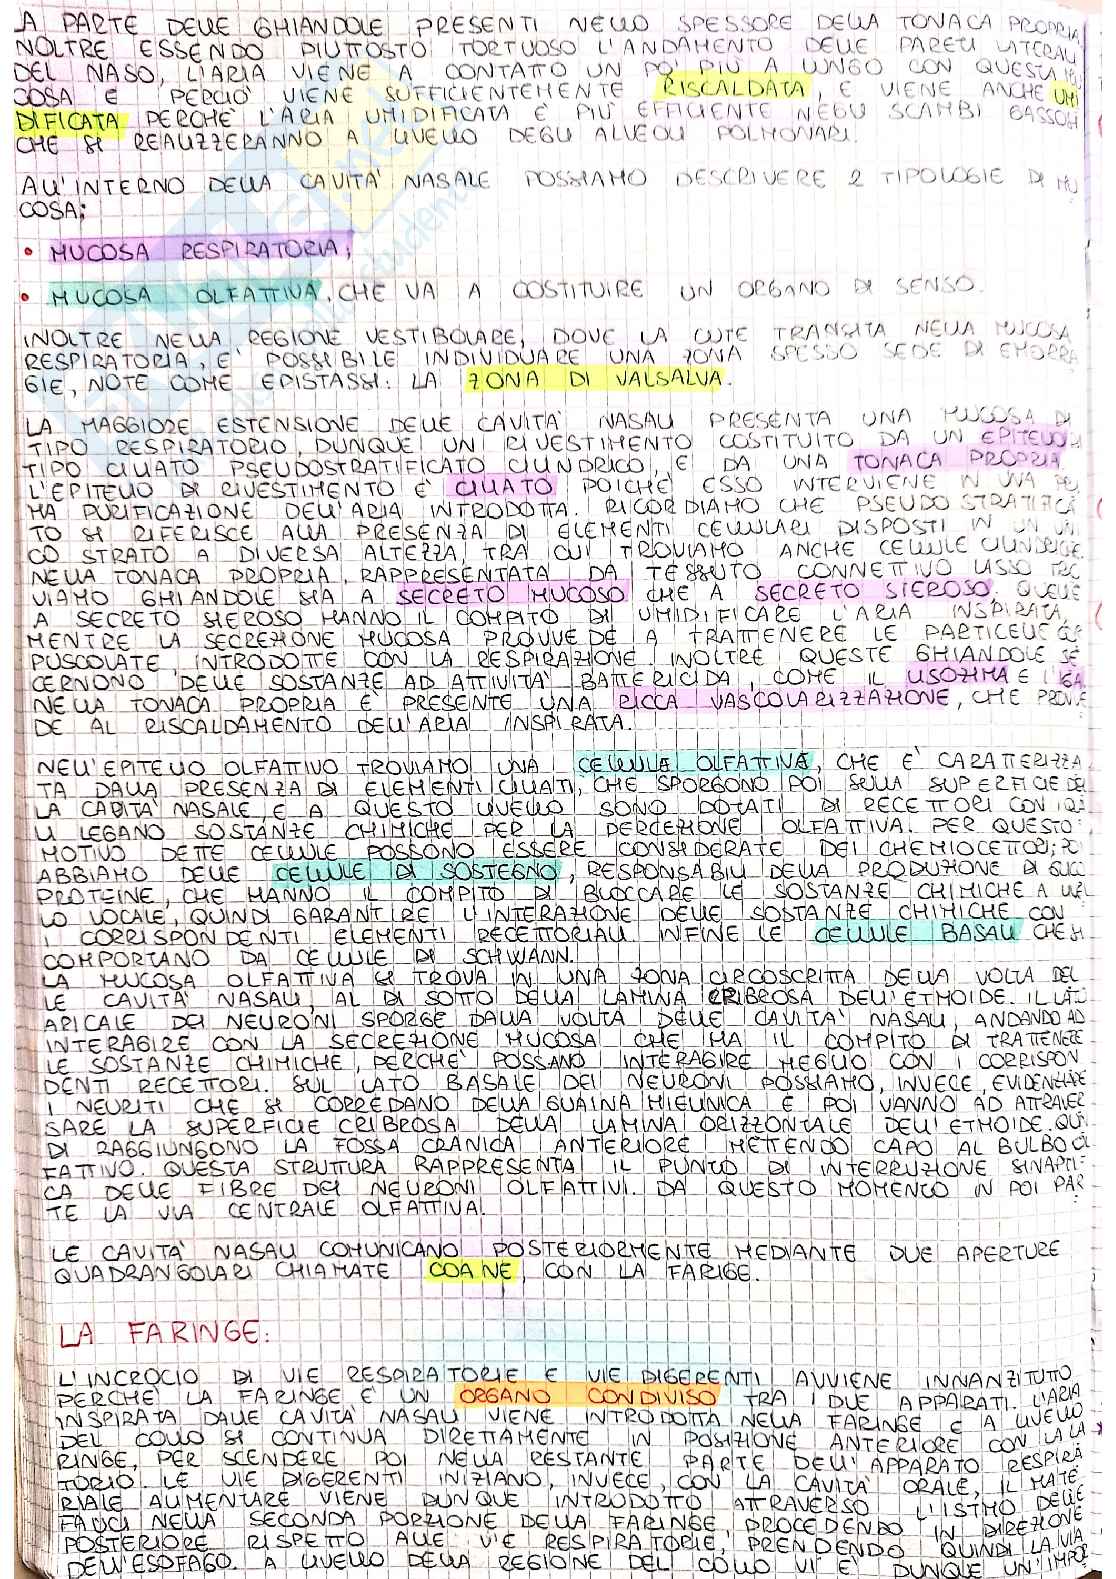 A PARTE DELLE GHIANDOLE PRESENTI NELLO SPESSORE DELLA TONACA PROPRIA
NOLTRE ESSENDO PIUTTOSTO TORTUOSO L'ANDAMENTO DELLE PARETI LATERALI
DEL NASO, L'ARIA VIENE A CONTATTO UN PO' PIÙ A LUNGO CON QUESTA MU
COSA E PERCIO' VIENE SUFFICIENTEMENTE RISCALDATA, E VIENE ANCHE UMI
DIFICATA PERCHE' L'ARIA UMIDIFICATA E' PIÙ EFFICIENTE NEGLI SCAMBI GASSOSI
CHE SI REALIZZERANNO A LIVELLO DEGLI ALVEOLI POLMONARI.
ALL'INTERNO DELLA CAVITA' NASALE POSSIAMO DESCRIVERE 2 TIPOLOGIE DI MU
COSA;
• MUCOSA RESPIRATORIA;
• MUCOSA OLFATTIVA, CHE VA A COSTITUIRE UN ORGANO DI SENSO.
INOLTRE NELLA REGIONE VESTIBOLARE, DOVE LA CUTE TRANSITA NELLA MUCOSA
RESPIRATORIA, E' POSSIBILE INDIVIDUARE UNA ZONA SPESSO SEDE DI EMORRA
GIE, NOTE COME EPISTASSI: LA ZONA DI VALSALVA.
LA MAGGIORE ESTENSIONE DELLE CAVITA' NASALI PRESENTA UNA MUCOSA DI
TIPO RESPIRATORIO, DUNQUE UN RIVESTIMENTO COSTITUITO DA UN EPITELIO DI
TIPO CILIATO PSEUDOSTRATIFICATO CILINDRICO, E DA UNA TONACA PROPRIA.
L'EPITELIO DI RIVESTIMENTO E' CILIATO POICHE' ESSO INTERVIENE IN UNA PRI
MA PURIFICAZIONE DELL'ARIA INTRODOTTA. RICORDIAMO CHE PSEUDOSTRATIFICA
TO SI RIFERISCE ALLA PRESENZA DI ELEMENTI CELLULARI DISPOSTI IN UN UNI
CO STRATO A DIVERSA ALTEZZA, TRA CUI TROVIAMO ANCHE CELLULE CILINDRICHE.
NELLA TONACA PROPRIA, RAPPRESENTATA DA TESSUTO CONNETTIVO LASSO TRO
VIAMO GHIANDOLE SIA A SECRETO MUCOSO CHE A SECRETO SIEROSO. QUELLE
A SECRETO SIEROSO HANNO IL COMPITO DI UMIDIFICARE L'ARIA INSPIRATA,
MENTRE LA SECREZIONE MUCOSA PROVVEDE A TRATTENERE LE PARTICELLE COR
PUSCOLATE INTRODOTTE CON LA RESPIRAZIONE. INOLTRE QUESTE GHIANDOLE SE
CERNONO DELLE SOSTANZE AD ATTIVITA' BATTERICIDA, COME IL LISOZIMA E L'IGA.
NELLA TONACA PROPRIA E' PRESENTE UNA RICCA VASCOLARIZZAZIONE, CHE PROVVE
DE AL RISCALDAMENTO DELL'ARIA INSPIRATA.
NELL'EPITELIO OLFATTIVO TROVIAMO UNA CELLULA OLFATTIVA, CHE E' CARATTERIZZA
TA DALLA PRESENZA DI ELEMENTI CILIATI, CHE SPORGONO POI SULLA SUPERFICIE DEL
LA CAVITA' NASALE, E A QUESTO LIVELLO SONO DOTATI DI RECETTORI CON I QUA
LI LEGANO SOSTANZE CHIMICHE PER LA PERCEZIONE OLFATTIVA. PER QUESTO
MOTIVO DETTE CELLULE POSSONO ESSERE CONSIDERATE DEI CHEMIOCETTORI; POI
ABBIAMO DELLE CELLULE DI SOSTEGNO, RESPONSABILI DELLA PRODUZIONE DI GLICO
PROTEINE, CHE HANNO IL COMPITO DI BLOCCARE LE SOSTANZE CHIMICHE A LIVEL
LO LOCALE, QUINDI GARANTIRE L'INTERAZIONE DELLE SOSTANZE CHIMICHE CON
I CORRISPONDENTI ELEMENTI RECETTORIALI. INFINE LE CELLULE BASALI CHE SI
COMPORTANO DA CELLULE DI SCHWANN.
LA MUCOSA OLFATTIVA SI TROVA IN UNA ZONA CIRCOSCRITTA DELLA VOLTA DEL
LE CAVITA' NASALI, AL DI SOTTO DELLA LAMINA CRIBROSA DELL'ETMOIDE. IL LATO
APICALE DEI NEURONI SPORGE DALLA VOLTA DELLE CAVITA' NASALI, ANDANDO AD
INTERAGIRE CON LA SECREZIONE MUCOSA CHE HA IL COMPITO DI TRATTENERE
LE SOSTANZE CHIMICHE, PERCHE' POSSANO INTERAGIRE MEGLIO CON I CORRISPON
DENTI RECETTORI. SUL LATO BASALE DEI NEURONI POSSIAMO, INVECE, EVIDENZIARE
I NEURITI CHE SI CORREDANO DELLA GUAINA MIELINICA E POI VANNO AD ATTRAVER
SARE LA SUPERFICIE CRIBROSA DELLA LAMINA ORIZZONTALE DELL'ETMOIDE. QUIN
DI RAGGIUNGONO LA FOSSA CRANICA ANTERIORE METTENDO CAPO AL BULBO OL
FATTIVO. QUESTA STRUTTURA RAPPRESENTA IL PUNTO DI INTERRUZIONE SINAPTI-
CA DELLE FIBRE DEI NEURONI OLFATTIVI. DA QUESTO MOMENTO IN POI PAR
TE LA VIA CENTRALE OLFATTIVA.
LE CAVITA' NASALI COMUNICANO POSTERIORMENTE MEDIANTE DUE APERTURE
QUADRANGOLARI CHIAMATE COANE, CON LA FARIGE.
LA FARINGE:
L'INCROCIO DI VIE RESPIRATORIE E VIE DIGERENTI AVVIENE INNANZITUTTO
PERCHE' LA FARINGE E' UN ORGANO CONDIVISO TRA I DUE APPARATI. L'ARIA
INSPIRATA DALLE CAVITA' NASALI VIENE INTRODOTTA NELLA FARINGE E A LIVELLO
DEL COLLO SI CONTINUA DIRETTAMENTE IN POSIZIONE ANTERIORE CON LA LA
RINGE, PER SCENDERE POI NELLA RESTANTE PARTE DELL'APPARATO RESPIRA
TORIO. LE VIE DIGERENTI INIZIANO, INVECE, CON LA CAVITA' ORALE, IL MATE
RIALE ALIMENTARE VIENE DUNQUE INTRODOTTO ATTRAVERSO L'ISTMO DELLE
FAUCI NELLA SECONDA PORZIONE DELLA FARINGE, PROCEDENDO IN DIREZIONE
POSTERIORE RISPETTO ALLE VIE RESPIRATORIE, PRENDENDO QUINDI LA VIA
DELL'ESOFAGO. A LIVELLO DELLA REGIONE DEL COLLO VI E' DUNQUE UN'IMPOR